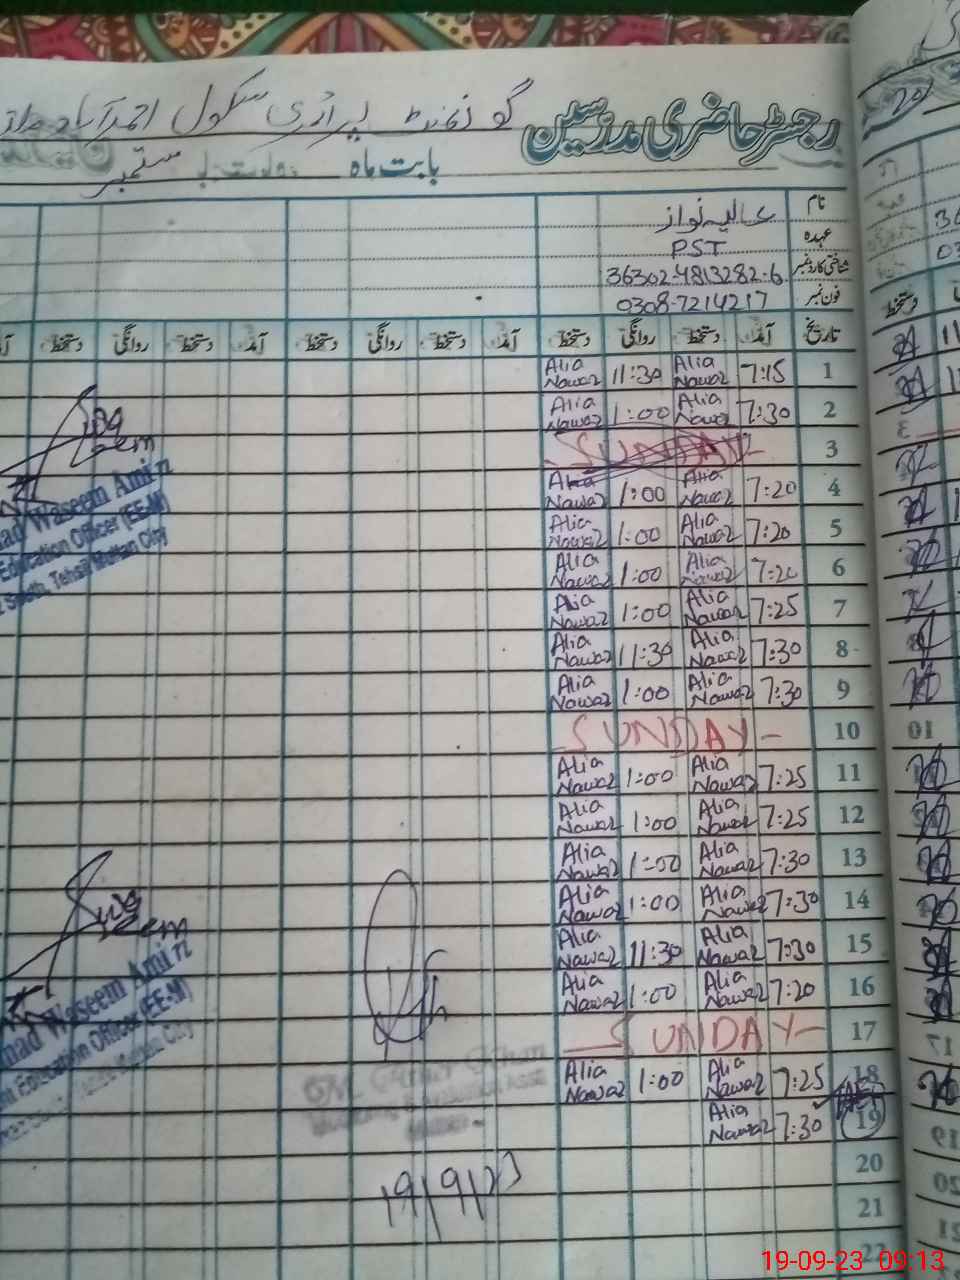 رجسٹر حاضری مدرسین گورنمنٹ پرائمری سکول احمد آباد
بابت ماہ ستمبر
نام عالیہ نواز
عہدہ PST
شناختی کارڈ نمبر 36302-4813282-6
فون نمبر 0308-7214217
تاریخ آمد دستخط روانگی دستخط آمد دستخط روانگی دستخط آمد دستخط روانگی دستخط
1 7:15 Alia Nawaz 11:30 Alia Nawaz
2 7:30 Alia Nawaz 1:00 Alia Nawaz
3 SUNDAY
4 7:20 Alia Nawaz 1:00 Alia Nawaz
5 7:20 Alia Nawaz 1:00 Alia Nawaz
6 7:20 Alia Nawaz 1:00 Alia Nawaz
7 7:25 Alia Nawaz 1:00 Alia Nawaz
8 7:30 Alia Nawaz 11:30 Alia Nawaz
9 7:30 Alia Nawaz 1:00 Alia Nawaz
10 SUNDAY
11 7:25 Alia Nawaz 1:00 Alia Nawaz
12 7:25 Alia Nawaz 1:00 Alia Nawaz
13 7:30 Alia Nawaz 1:00 Alia Nawaz
14 7:30 Alia Nawaz 1:00 Alia Nawaz
15 7:30 Alia Nawaz 11:30 Alia Nawaz
16 7:20 Alia Nawaz 1:00 Alia Nawaz
17 SUNDAY
18 7:25 Alia Nawaz 1:00 Alia Nawaz
19 7:30 Alia Nawaz
20
21
22
Waseem Amin
Education Officer (EE-M)
Tehsil Multan City
Waseem Amin
Education Officer (EE-M)
19/9/23
19-09-23 09:13